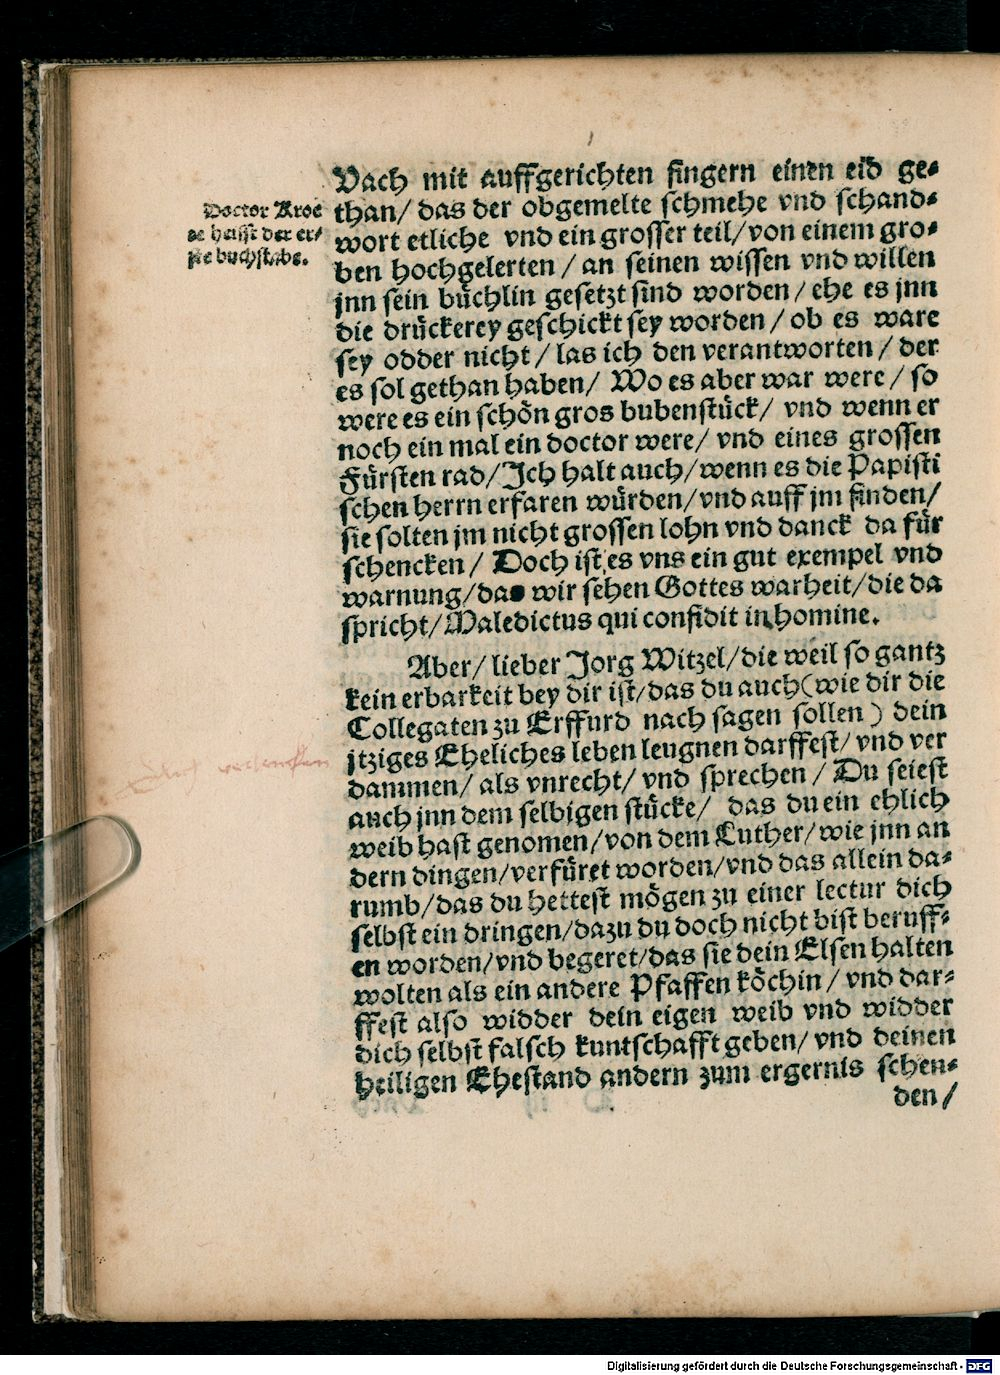 Vach mit auffgerichten fingern einen eid ge⸗
than/ das der obgemelte schmehe vnd schand⸗
wort etliche vnd ein grosser teil/ von einem gro⸗
ben hochgelerten / an seinen wissen vnd willen
jnn sein büchlin gesetzt sind worden/ ehe es jnn
die drückerey geschickt sey worden / ob es ware
sey odder nicht / las ich den verantworten / der
es sol gethan haben/ Wo es aber war were / so
were es ein schön gros bubenstück/ vnd wenn er
noch ein mal ein doctor were/ vnd eines grossen
Fürsten rad/ Ich halt auch/ wenn es die Papisti
schen herrn erfaren würden/ vnd auff jm finden/
sie solten jm nicht grossen lohn vnd danck da für
schencken / Doch ist es vns ein gut exempel vnd
warnung/ das wir sehen Gottes warheit/ die da
spricht/ Maledictus qui confidit in homine.
Doctor Kroe
heisst der er⸗
ste buchstabe.
Aber/ lieber Jorg Witzel/ die weil so gantz
kein erbarkeit bey dir ist/ das du auch (wie dir die
Collegaten zu Erffurd nach sagen sollen) dein
jtziges Eheliches leben leugnen darffest/ vnd ver
dammen/ als vnrecht/ vnd sprechen / Du seiest
auch jnn dem selbigen stücke/ das du ein ehlich
weib hast genomen/ von dem Luther/ wie jnn an
dern dingen/ verfüret worden/ vnd das allein da⸗
rumb/ das du hettest mögen zu einer lectur dich
selbst ein dringen/ dazu du doch nicht bist beruff⸗
en worden/ vnd begeret/ das sie dein Elsen halten
wolten als ein andere Pfaffen köchin / vnd dar⸗
ffest also widder dein eigen weib vnd widder
dich selbst falsch kuntschafft geben/ vnd deinen
heiligen Ehestand andern zum ergernis schen⸗
den /
Digitalisierung gefördert durch die Deutsche Forschungsgemeinschaft - DFG